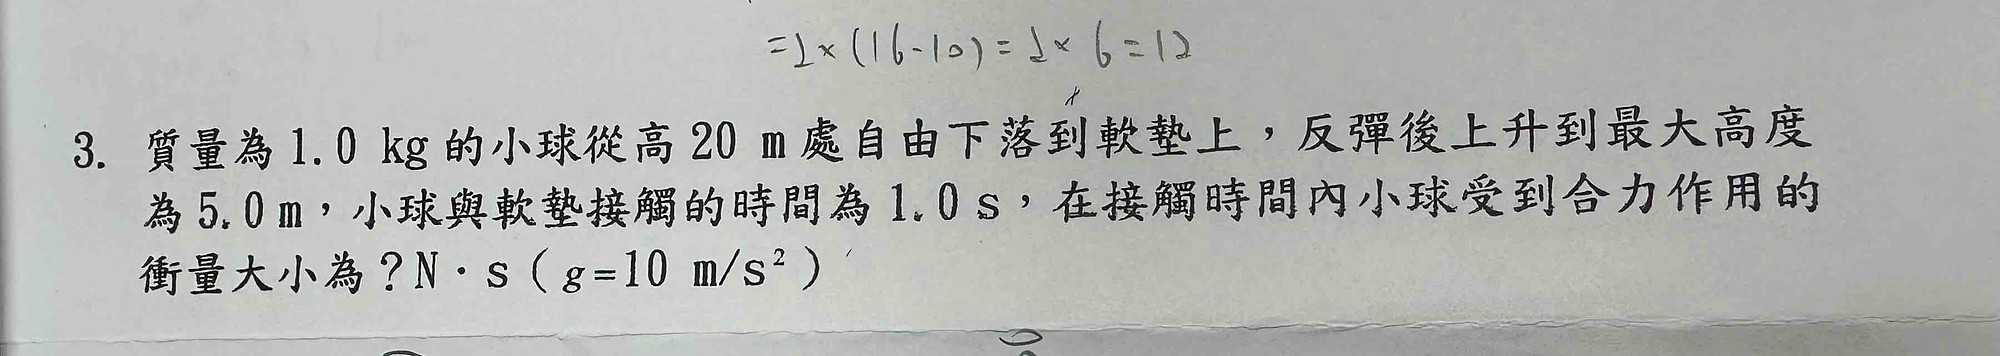 =2×(16-10)=2×6=12
3. 質量為1.0 kg的小球從高20 m處自由下落到軟墊上，反彈後上升到最大高度
為5.0m，小球與軟墊接觸的時間為1.0 s，在接觸時間內小球受到合力作用的
衝量大小為？N·s（g=10 m/s²）